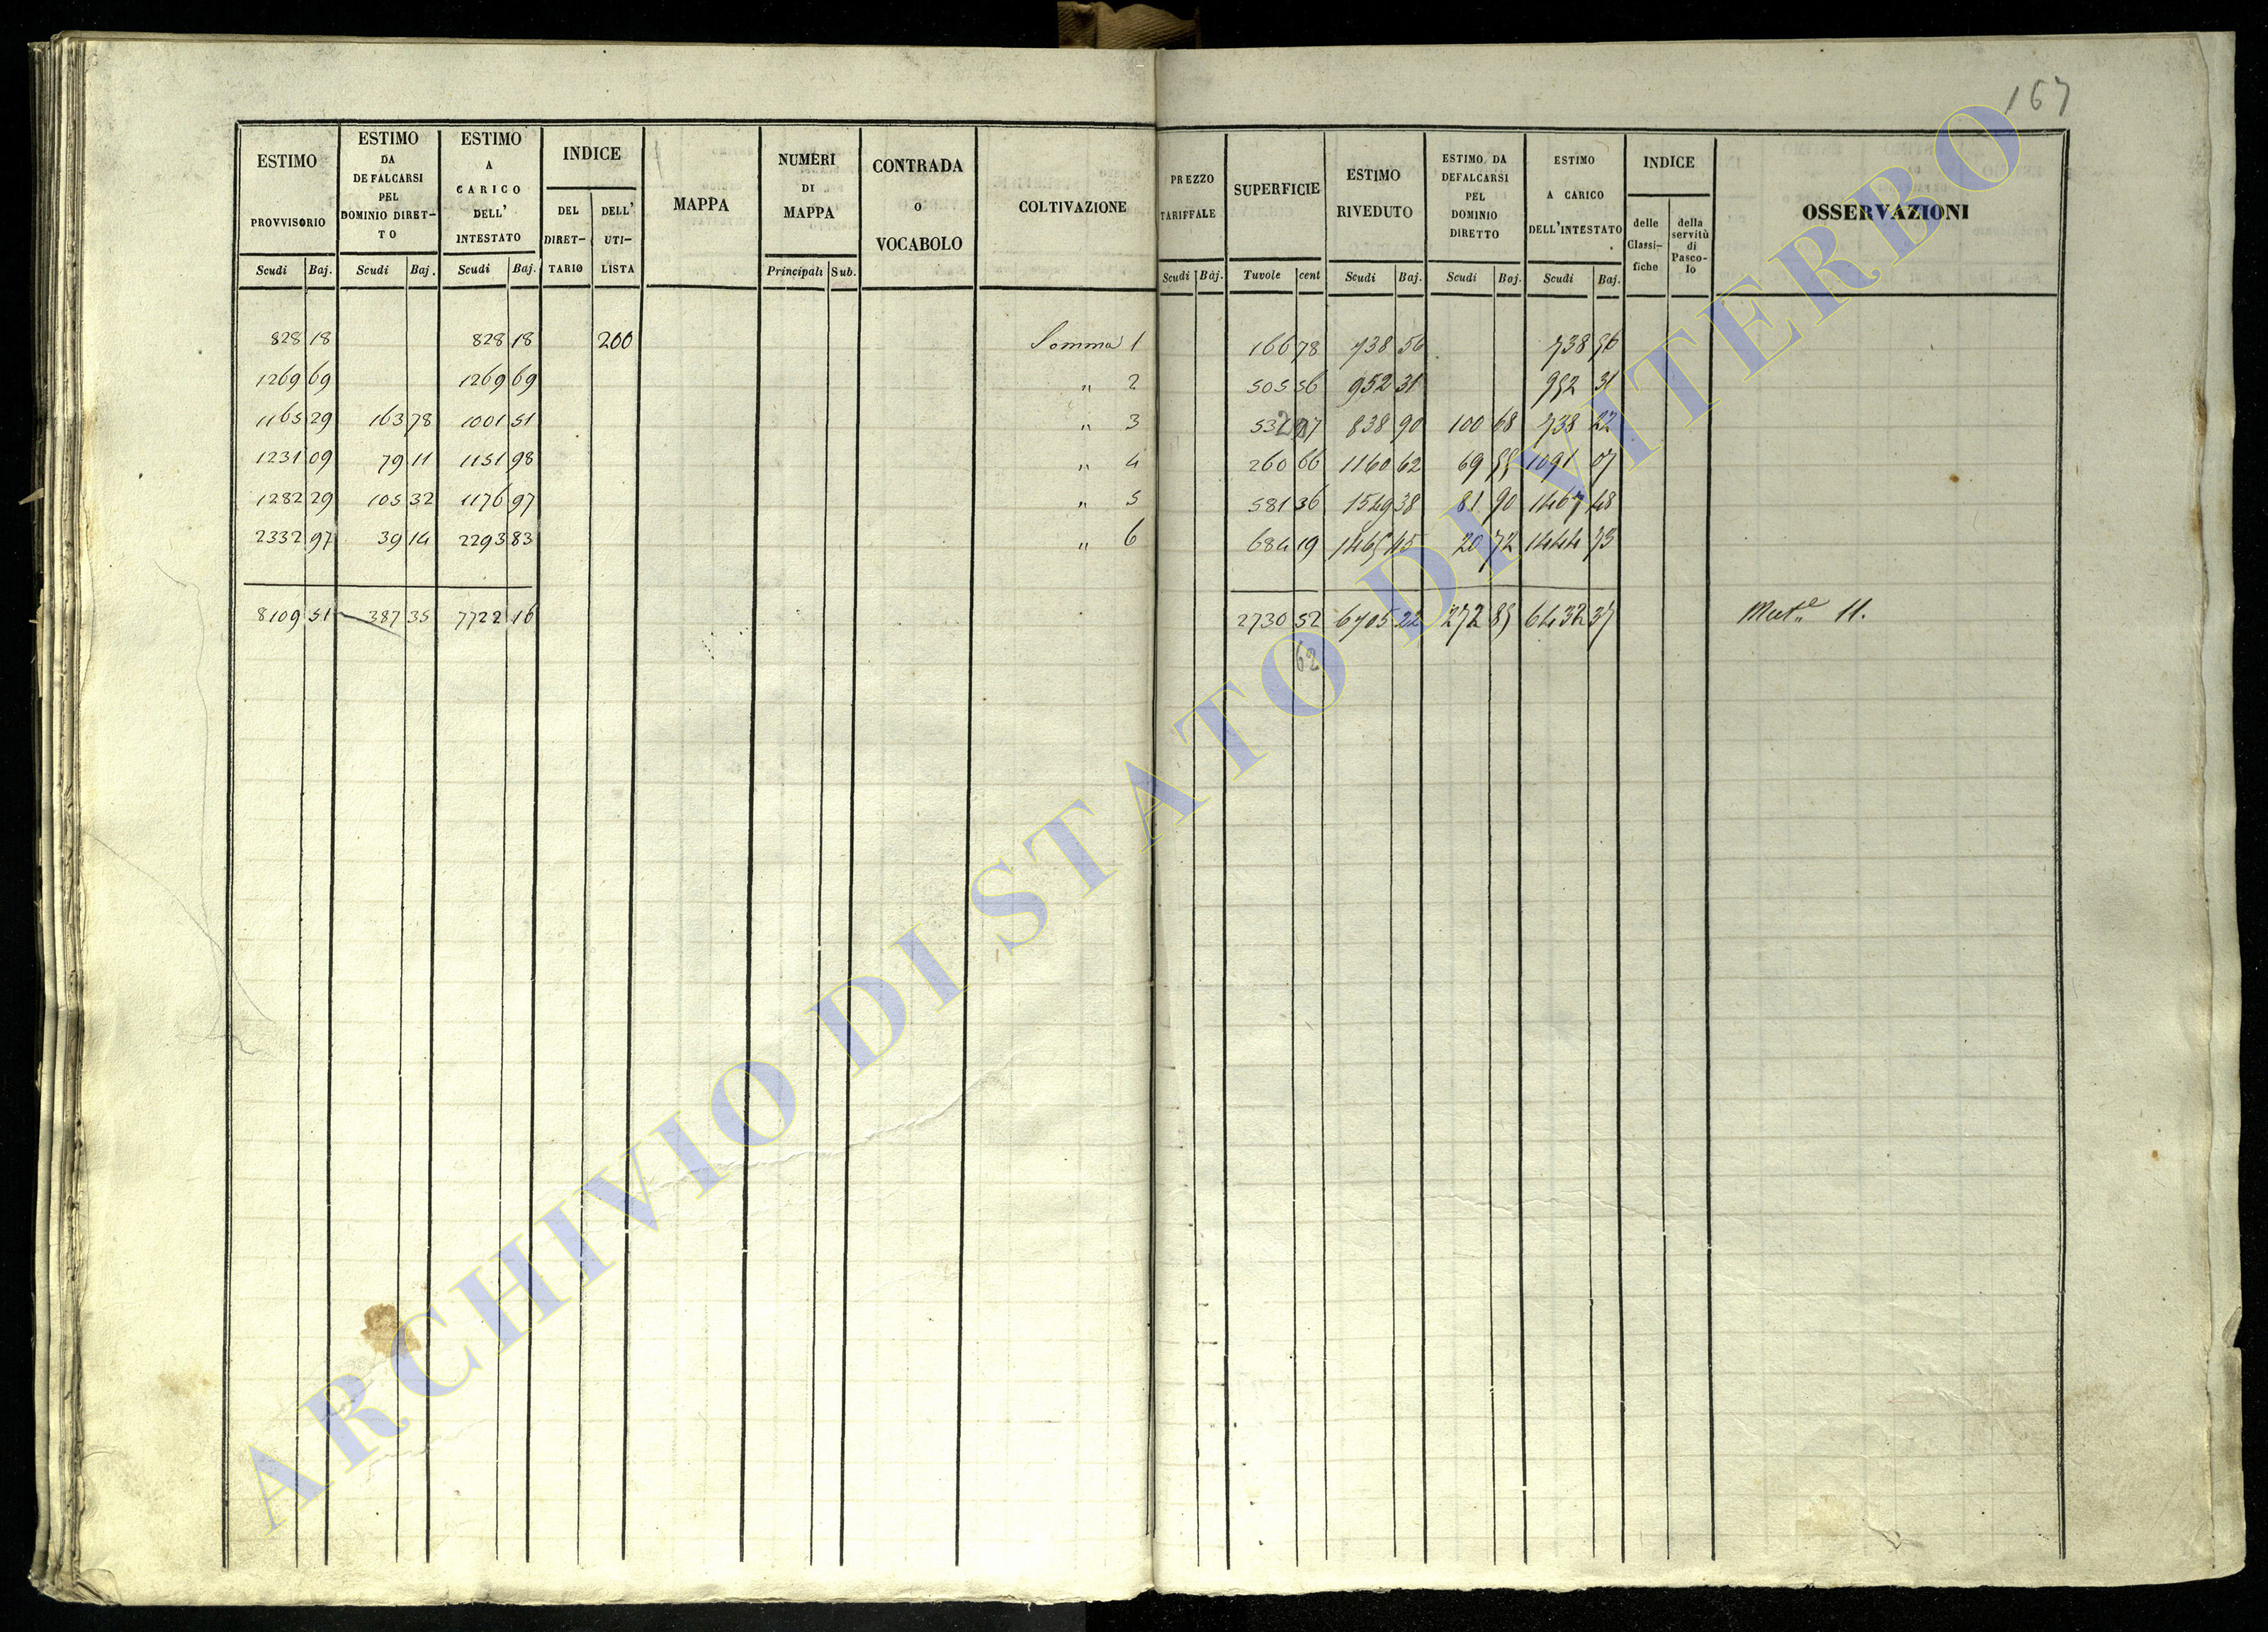 167
ESTIMO PROVVISORIO | ESTIMO DA DEFALCARSI PEL DOMINIO DIRETTO | ESTIMO A CARICO DELL' INTESTATO | INDICE | MAPPA | NUMERI DI MAPPA | CONTRADA O VOCABOLO | COLTIVAZIONE | PREZZO TARIFFALE | SUPERFICIE | ESTIMO RIVEDUTO | ESTIMO DA DEFALCARSI PEL DOMINIO DIRETTO | ESTIMO A CARICO DELL'INTESTATO | INDICE | OSSERVAZIONI
DEL DIRETTARIO | DELL' UTILISTA | delle Classifiche | della servitù di Pascolo
Scudi | Baj. | Scudi | Baj. | Scudi | Baj. | Principali | Sub. | Scudi | Baj. | Tavole | cent | Scudi | Baj. | Scudi | Baj. | Scudi | Baj.
828 18 | 828 18 | 200 | Somma 1 | 166 78 | 738 56 | 738 56
1269 69 | 1269 69 | " 2 | 505 56 | 952 31 | 952 31
1165 29 | 163 78 | 1001 51 | " 3 | 838 90 | 100 68 | 738 22
1231 09 | 79 11 | 1151 98 | " 4 | 260 66 | 1160 62 | 69 55 | 1091 07
1282 29 | 105 32 | 1176 97 | " 5 | 581 36 | 1549 38 | 81 90 | 1467 48
2332 97 | 39 14 | 2293 83 | " 6 | 684 19 | 1465 45 | 20 72 | 1444 73
8109 51 | 387 35 | 7722 16 | 2730 52 | 6705 22 | 272 85 | 6432 37 | Mut.e 11.
62
ARCHIVIO DI STATO DI VITERBO